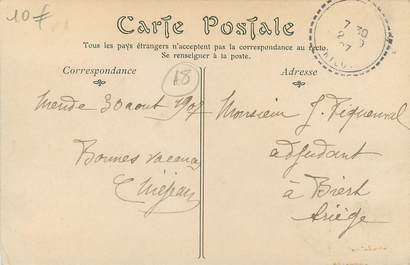 10 F
Carte Postale
Tous les pays étrangers n'acceptent pas la correspondance au recto.
Se renseigner à la poste.
Correspondance
18
Adresse
7 30
Mende 30 aout 1907
Bonnes vacances
Monsieur J.
adjudant
à Biert
Ariège